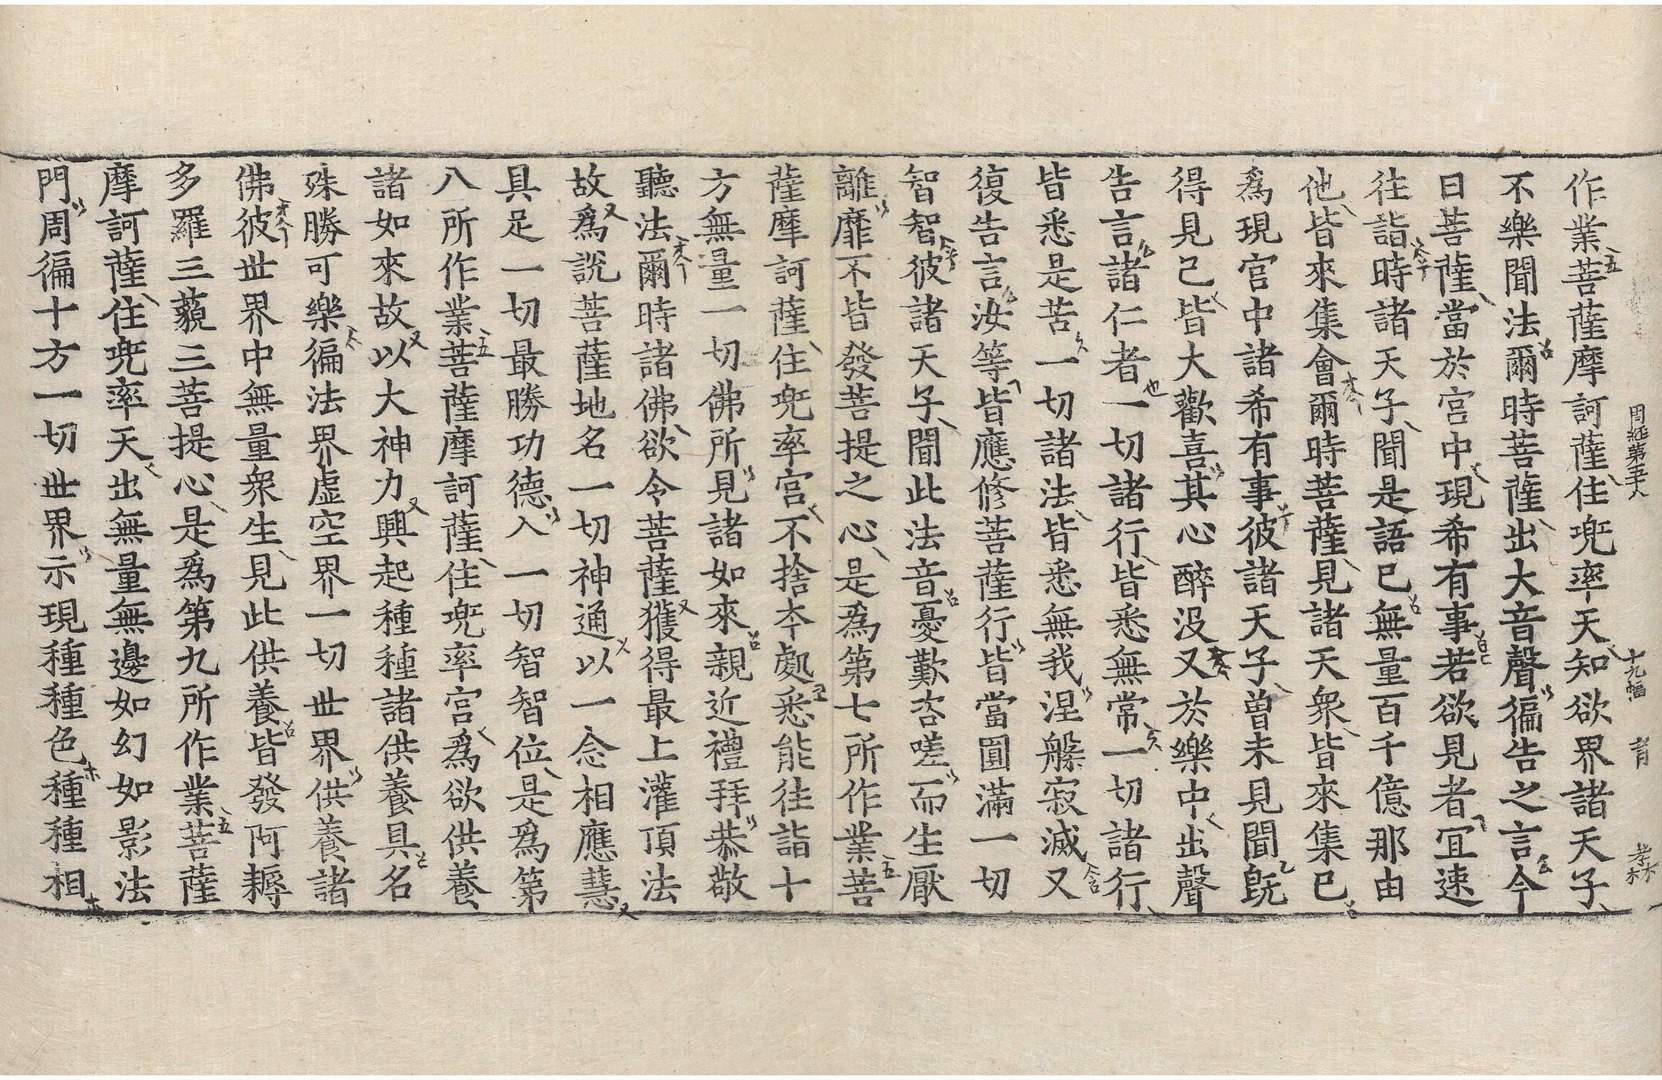 周經第五十八 十九幅 育 孝林
作業菩薩摩訶薩住兜率天知欲界諸天子
不樂聞法爾時菩薩出大音聲徧告之言今
日菩薩當於宮中現希有事若欲見者宜速
往詣時諸天子聞是語已無量百千億那由
他皆來集會爾時菩薩見諸天衆皆來集已
爲現宮中諸希有事彼諸天子曾未見聞旣
得見已皆大歡喜其心醉没又於樂中出聲
告言諸仁者一切諸行皆悉無常一切諸行
皆悉是苦一切諸法皆悉無我涅槃寂滅又
復告言汝等皆應修菩薩行皆當圓滿一切
智智彼諸天子聞此法音憂歎咨嗟而生厭
離靡不皆發菩提之心是爲第七所作業菩
薩摩訶薩住兜率宮不捨本處悉能往詣十
方無量一切佛所見諸如來親近禮拜恭敬
聽法爾時諸佛欲令菩薩獲得最上灌頂法
故爲說菩薩地名一切神通以一念相應慧
具足一切最勝功德入一切智智位是爲第
八所作業菩薩摩訶薩住兜率宮爲欲供養
諸如來故以大神力興起種種諸供養具名
殊勝可樂徧法界虛空界一切世界供養諸
佛彼世界中無量衆生見此供養皆發阿耨
多羅三藐三菩提心是爲第九所作業菩薩
摩訶薩住兜率天出無量無邊如幻如影法
門周徧十方一切世界示現種種色種種相